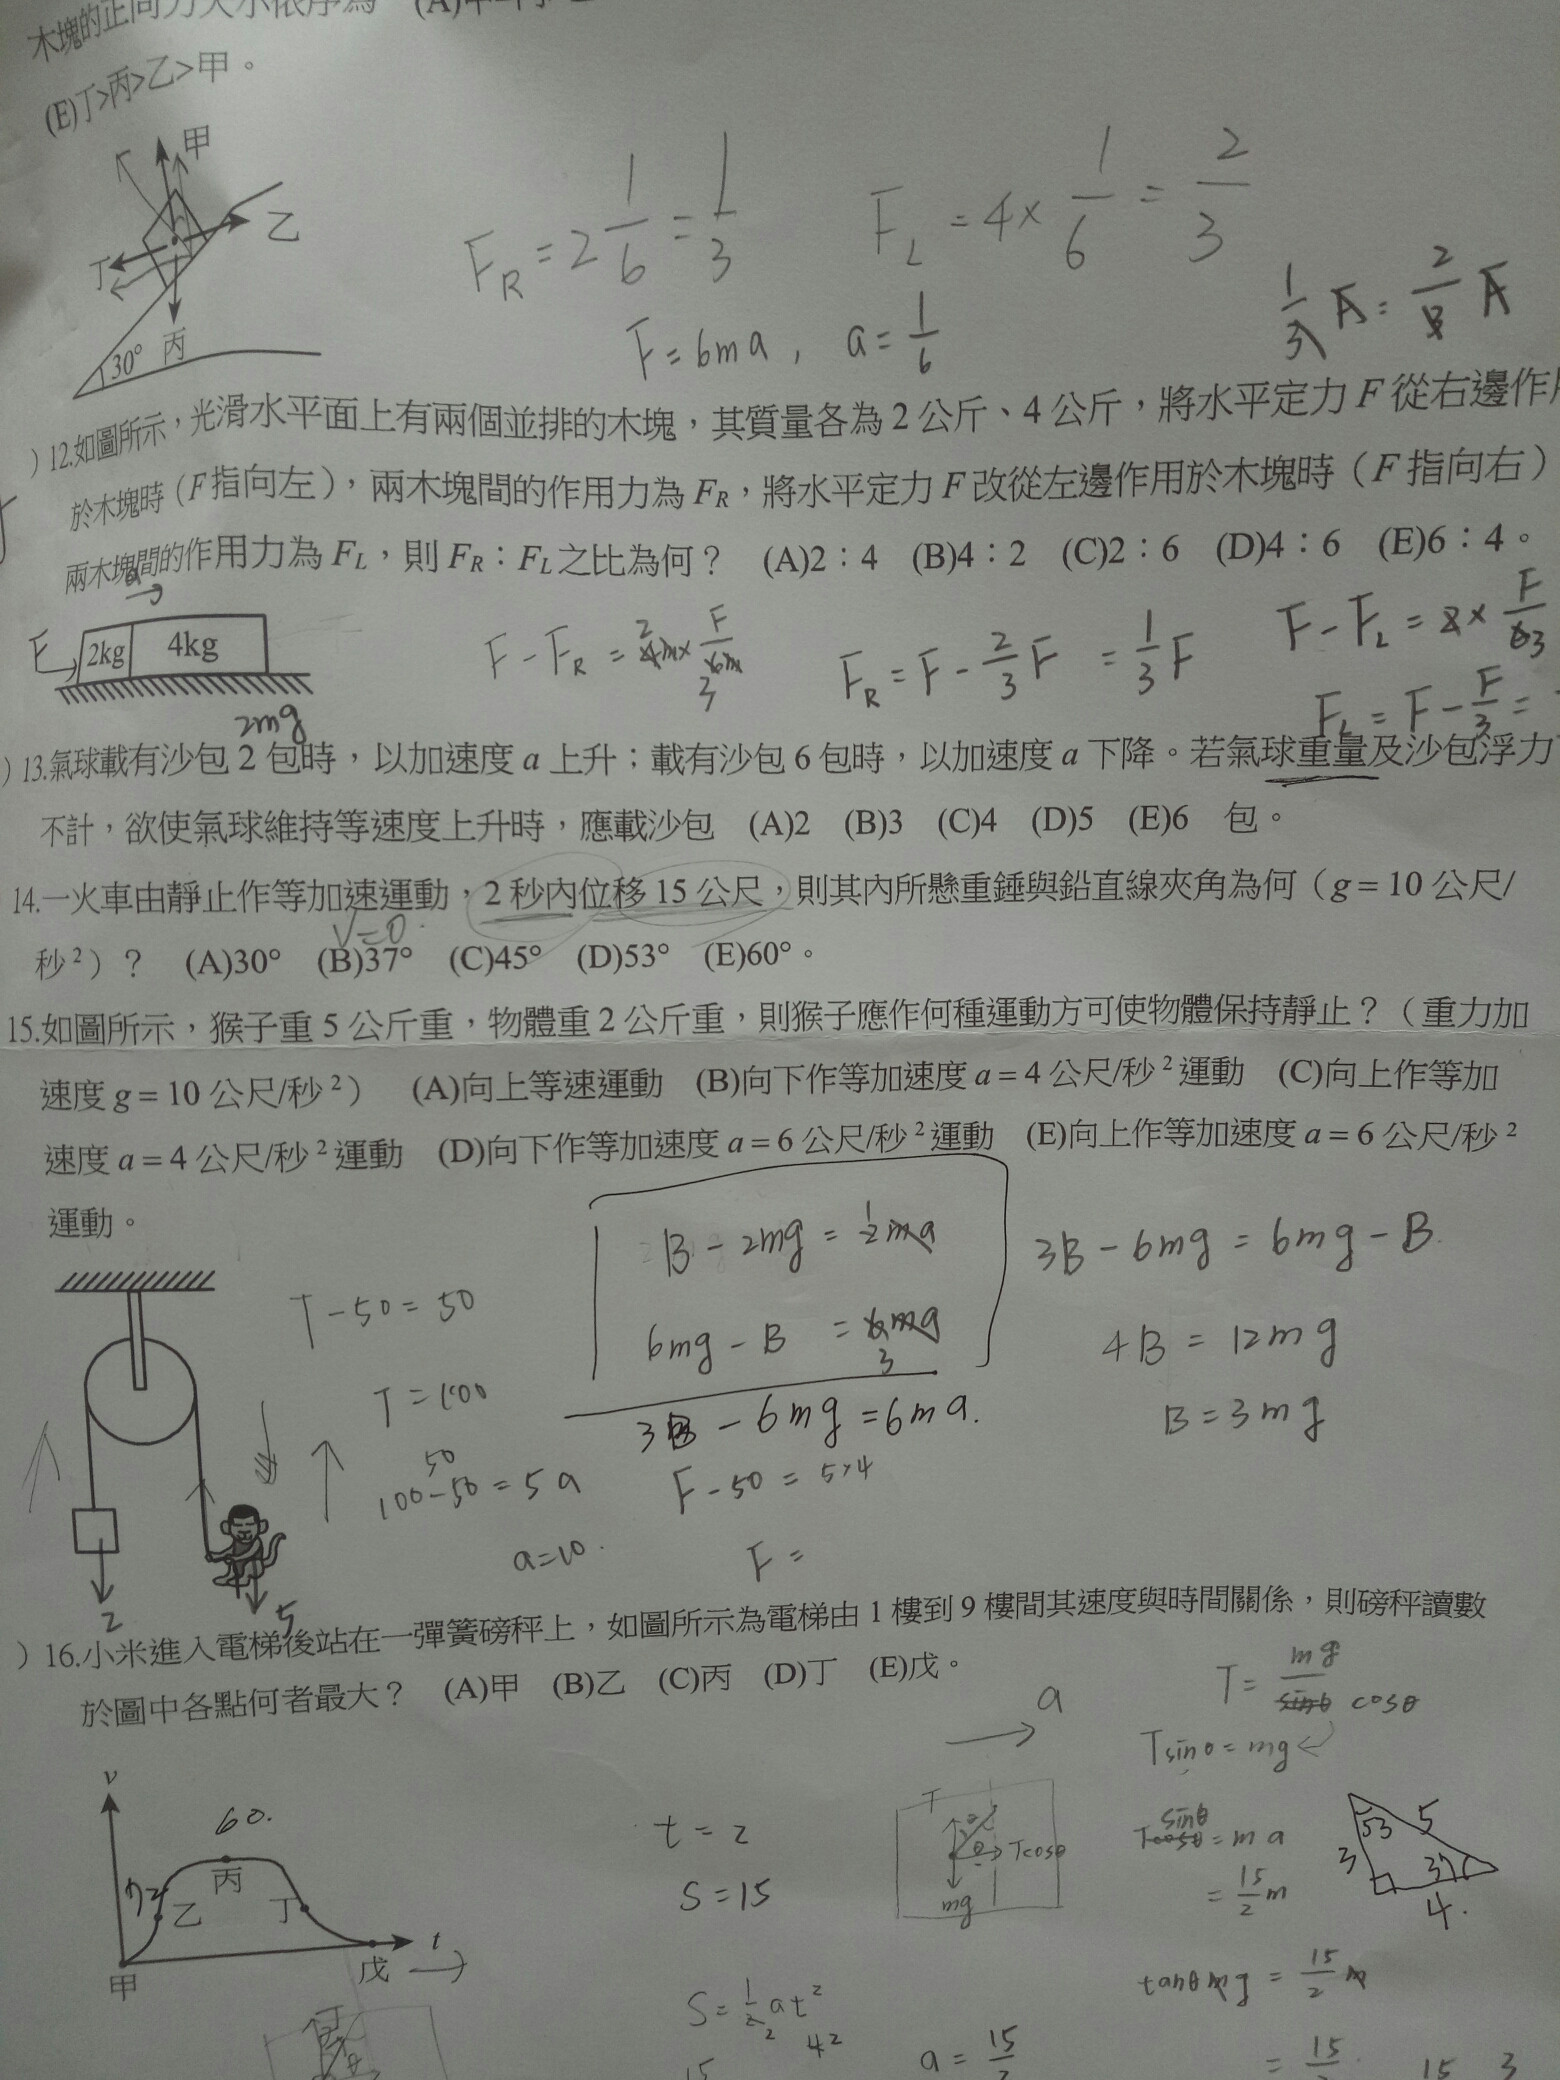 木塊的正向力大小依序為 (A)甲
(E)丁>丙>乙>甲。
甲
乙
丁
丙
30°
F_R = 2 1/6 = 1/3
F_L = 4 × 1/6 = 2/3
F = 6ma , a = 1/6
)12.如圖所示，光滑水平面上有兩個並排的木塊，其質量各為 2 公斤、4 公斤，將水平定力 F 從右邊作
於木塊時（F 指向左），兩木塊間的作用力為 F_R，將水平定力 F 改從左邊作用於木塊時（F 指向右）
兩木塊間的作用力為 F_L，則 F_R：F_L 之比為何？ (A)2：4 (B)4：2 (C)2：6 (D)4：6 (E)6：4。
a
F
2kg
4kg
F_R = F - 2/3 F = 1/3 F
2mg
)13.氣球載有沙包 2 包時，以加速度 a 上升；載有沙包 6 包時，以加速度 a 下降。若氣球重量及沙包浮力
不計，欲使氣球維持等速度上升時，應載沙包 (A)2 (B)3 (C)4 (D)5 (E)6 包。
14.一火車由靜止作等加速運動，2 秒內位移 15 公尺，則其內所懸重錘與鉛直線夾角為何（g = 10 公尺/
V=0
秒²）？ (A)30° (B)37° (C)45° (D)53° (E)60°。
15.如圖所示，猴子重 5 公斤重，物體重 2 公斤重，則猴子應作何種運動方可使物體保持靜止？（重力加
速度 g = 10 公尺/秒²） (A)向上等速運動 (B)向下作等加速度 a = 4 公尺/秒² 運動 (C)向上作等加
速度 a = 4 公尺/秒² 運動 (D)向下作等加速度 a = 6 公尺/秒² 運動 (E)向上作等加速度 a = 6 公尺/秒²
運動。
3B - 6mg = 6mg - B
T - 50 = 50
4B = 12mg
T = 100
3B - 6mg = 6ma.
B = 3mg
50
100-50 = 5a
F - 50 = 5×4
a = 10
F =
2
5
)16.小米進入電梯後站在一彈簧磅秤上，如圖所示為電梯由 1 樓到 9 樓間其速度與時間關係，則磅秤讀數
於圖中各點何者最大？ (A)甲 (B)乙 (C)丙 (D)丁 (E)戊。
a
Tsinθ = mg
v
60.
丙
乙
丁
甲
戊
t
t = 2
S = 15
T
Tcosθ
mg
sinθ
= ma
= 15/2 m
53
5
3
37
4.
S = 1/2 at²